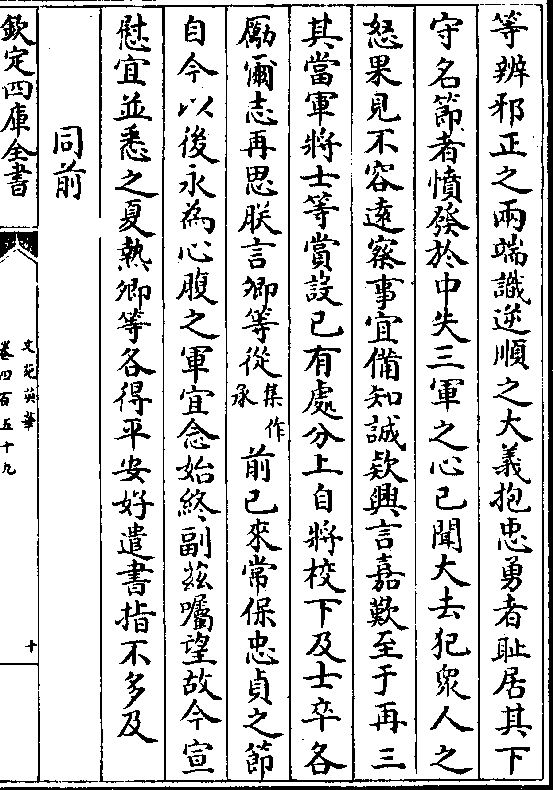 等辨邪正之兩端識逆順之大義抱忠勇者耻居其下
守名節者憤發於中失三軍之心已聞大去犯衆人之
怒果見不容遠察事宜備知誠欵興言嘉歎至于再三
其當軍將士等賞設已有處分上自將校下及士卒各
勵爾志再思朕言卿等從集作承前已來常保忠貞之節
自今以後永為心腹之軍宜念始終副兹囑望故今宣
慰宜並悉之夏熱卿等各得平安好遣書指不多及
同前
欽定四庫全書
文苑英華
卷四百五十九
十